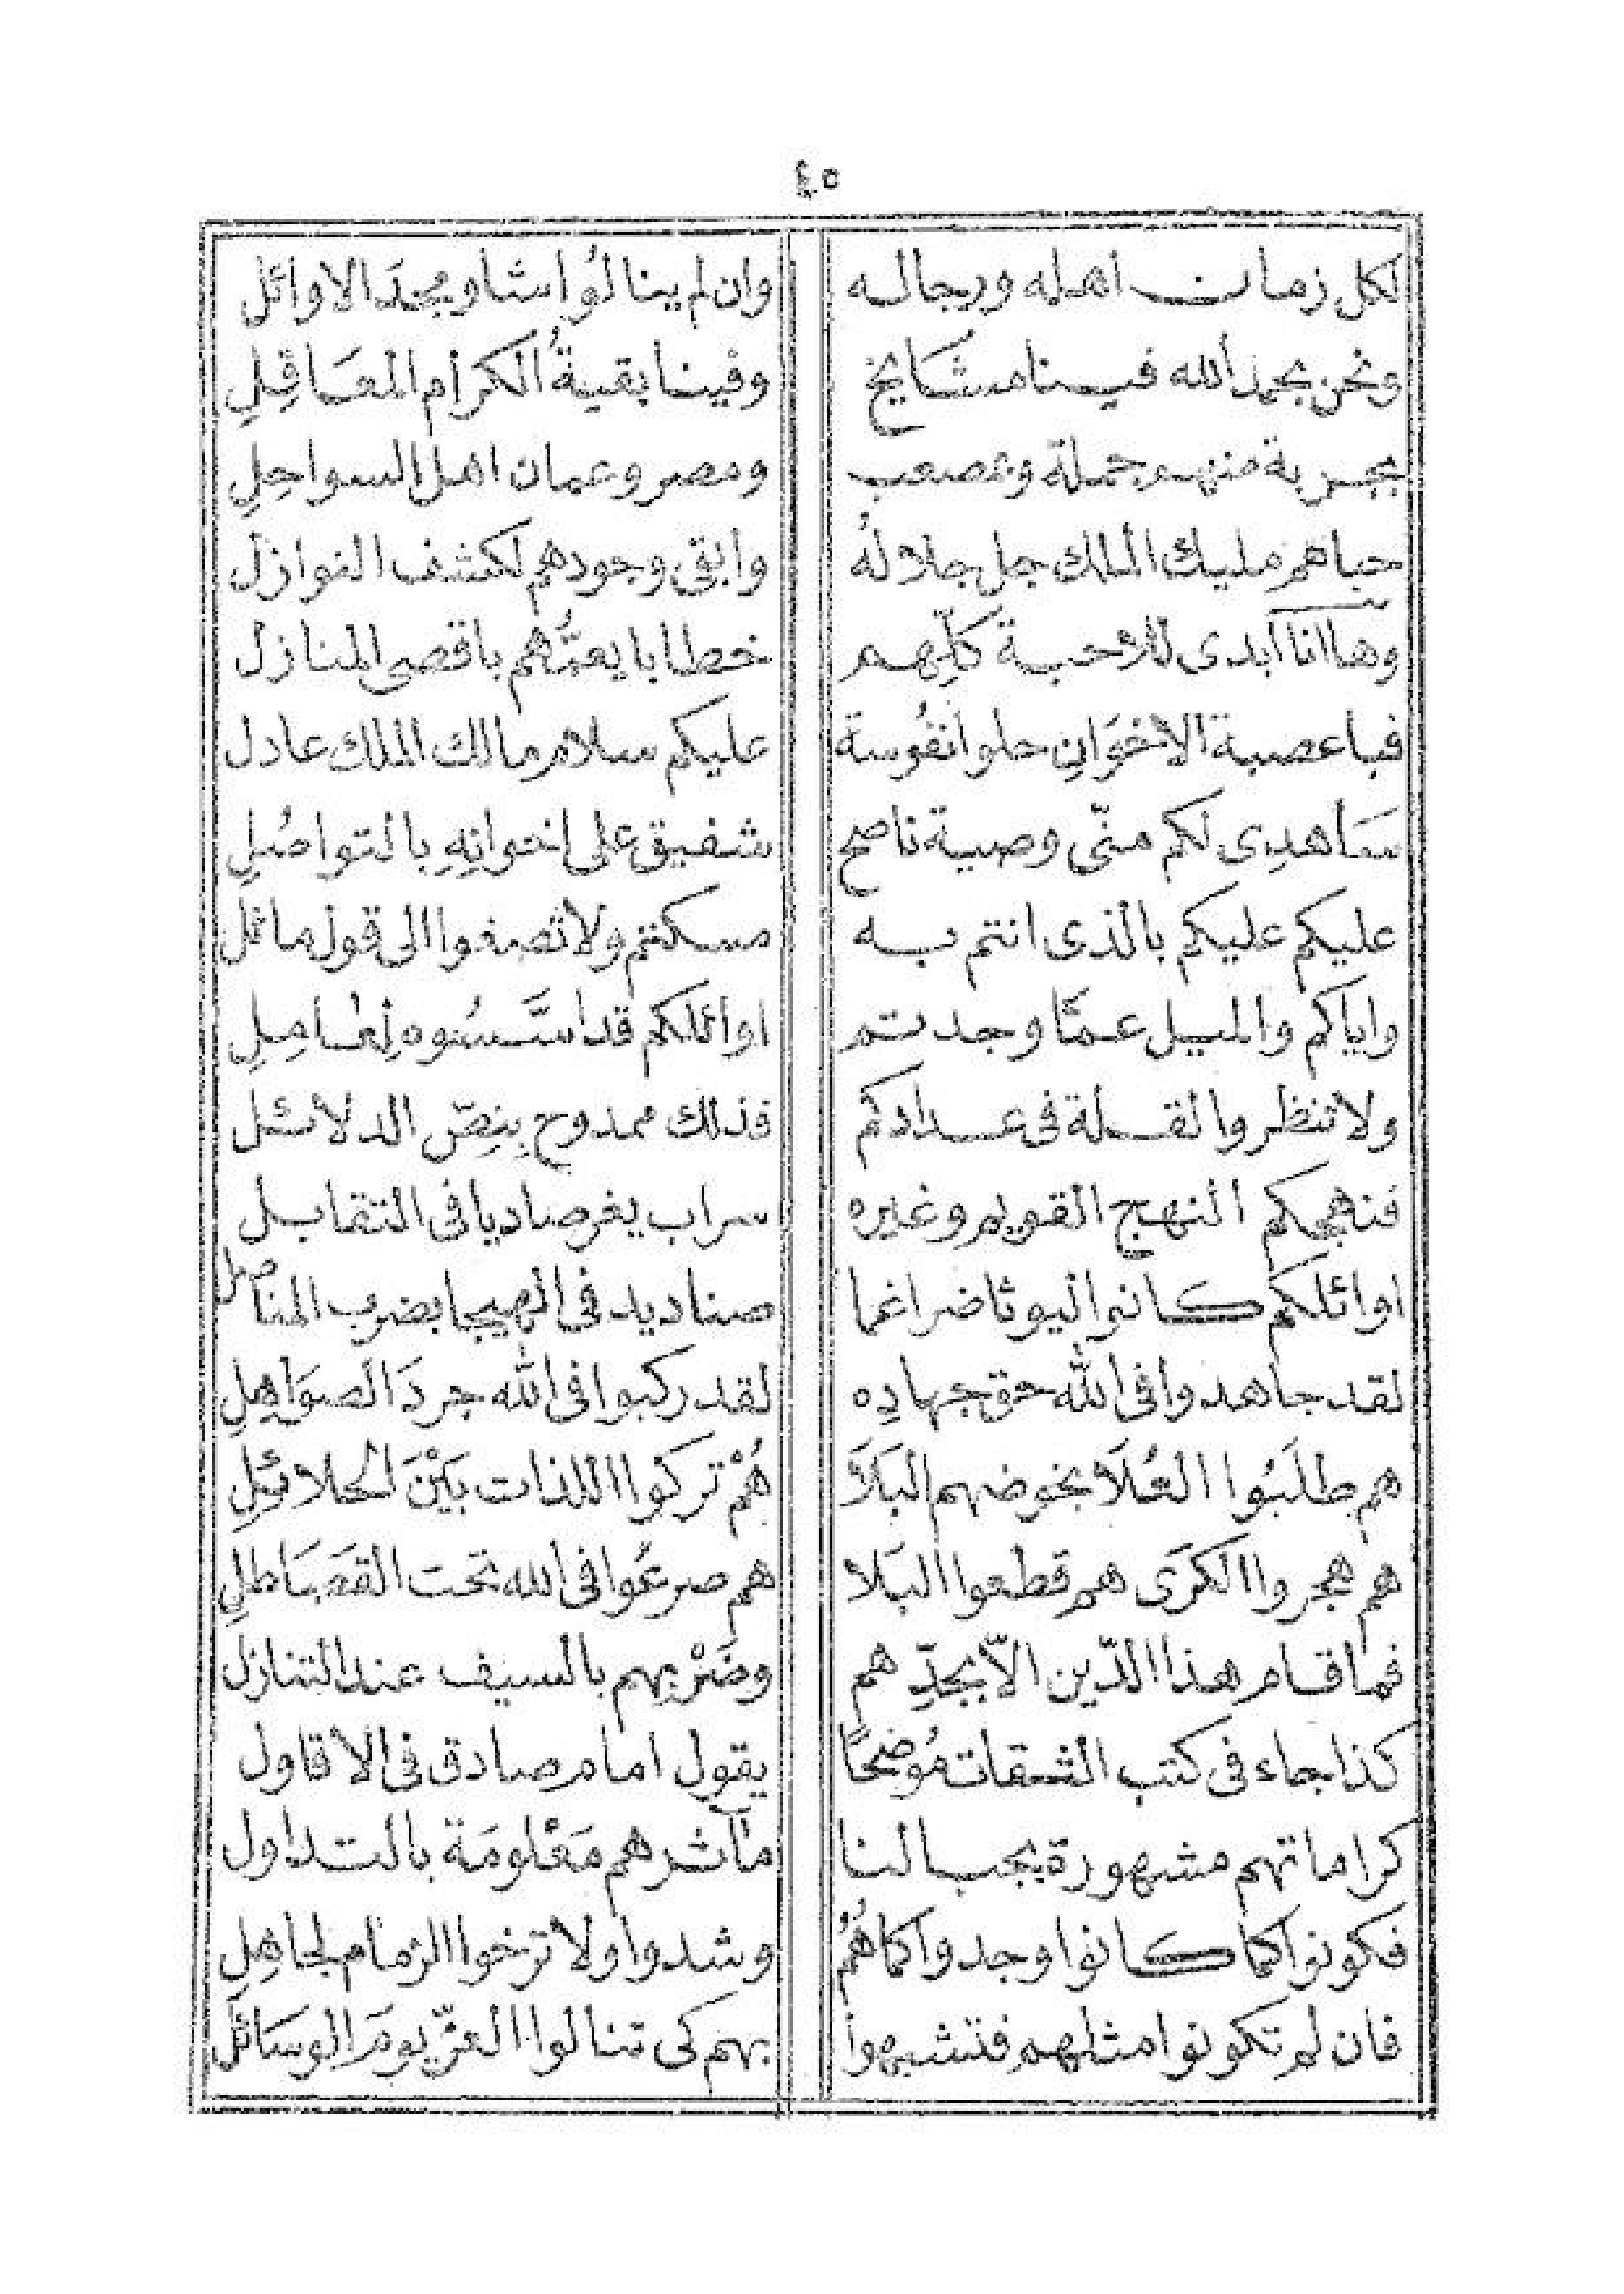 ٤٥
لكل زمان اهله ورجاله وان لم ينالُوا شاو مجدَ الاوائل
ونحن بحمد الله فينا مشَايخ وفينا بقيةُ الكرام المعَاقِلِ
بجربة منهم جملة ومصعب ومصر وعمان اهل السواحِلِ
حباهم مليك الملك جل جلالهُ وابقى وجودهم لكشف النوازل
وها انا ابدى للاحبة كلِّهم خطابا يعمُّهم باقصى المنازل
فيا عصبة الاخوَانِ حلوا نفُوسة عليكم سلام مالك الملك عادل
سَاهدِى لكم منّى وصية ناصح شفيق على اخوانِهِ بالتواصُلِ
عليكم عليكم بالذى انتم به مسكتم ولا تصغوا الى قول مائل
واياكم والميل عمَّا وجدتم اوائلكم قد اسَّسُوه لِعَامِلِ
ولا تنظروا لقلة فى عدادكم فذلك ممدوح بِنِصّ الدلائل
فنهجكم النهج القويم وغيره سراب يغر صاديا فى التقابل
اوائلكم كانوا ليوثا ضراغما صناديد فى الهيجا بضرب المناصل
لقد جاهدوا فى الله حق جهادِه لقد ركبوا فى الله جردَ الصوَاهِلِ
هم طلَبُوا العُلَا بخوضهم البَلَاَ هُمْ تركوا اللذات بَيْنَ الحلائِلِ
هم هجروا الكَرَى هم قطعوا البَلا هم صرعُوا فى الله تحت القَسَاطلِ
فما قام هذا الدّين الاّ بجدِّهم وضَرْبِهم بالسيف عند التنازل
كذا جاء فى كتب الثقات مُوَضحًا يقول امام صادق فى الاقاول
كراماتهم مشهورة بجبالنا مآثرهم مَعْلومَة بالتداول
فكونوا كما كانوا وجدوا كمَا هُمُ وشدوا ولا ترخوا الزمام لجاهِلِ
فان لم تكونوا مثلهم فتشبهوا بهم كى تنالوا العزّ يومَ الوسَائل